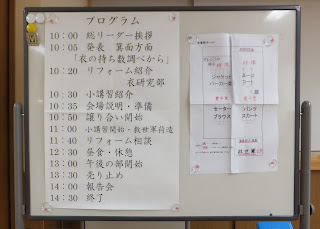 プログラム
10:00 総リーダー挨拶
10:05 発表 箕面方面
「衣の持ち数調べから」
10:20 リフォーム紹介
衣研究部
10:30 小講習紹介
10:35 会場説明・準備
10:50 譲り合い開始
11:00 小講習開始・救世軍荷造
11:40 リフォーム相談
12:30 昼食・休憩
13:00 午後の部開始
13:30 売り止め
14:00 報告会
14:30 終了
ジャケット
パーカー
スカート
セーター
ブラウス
パンツ
スカート